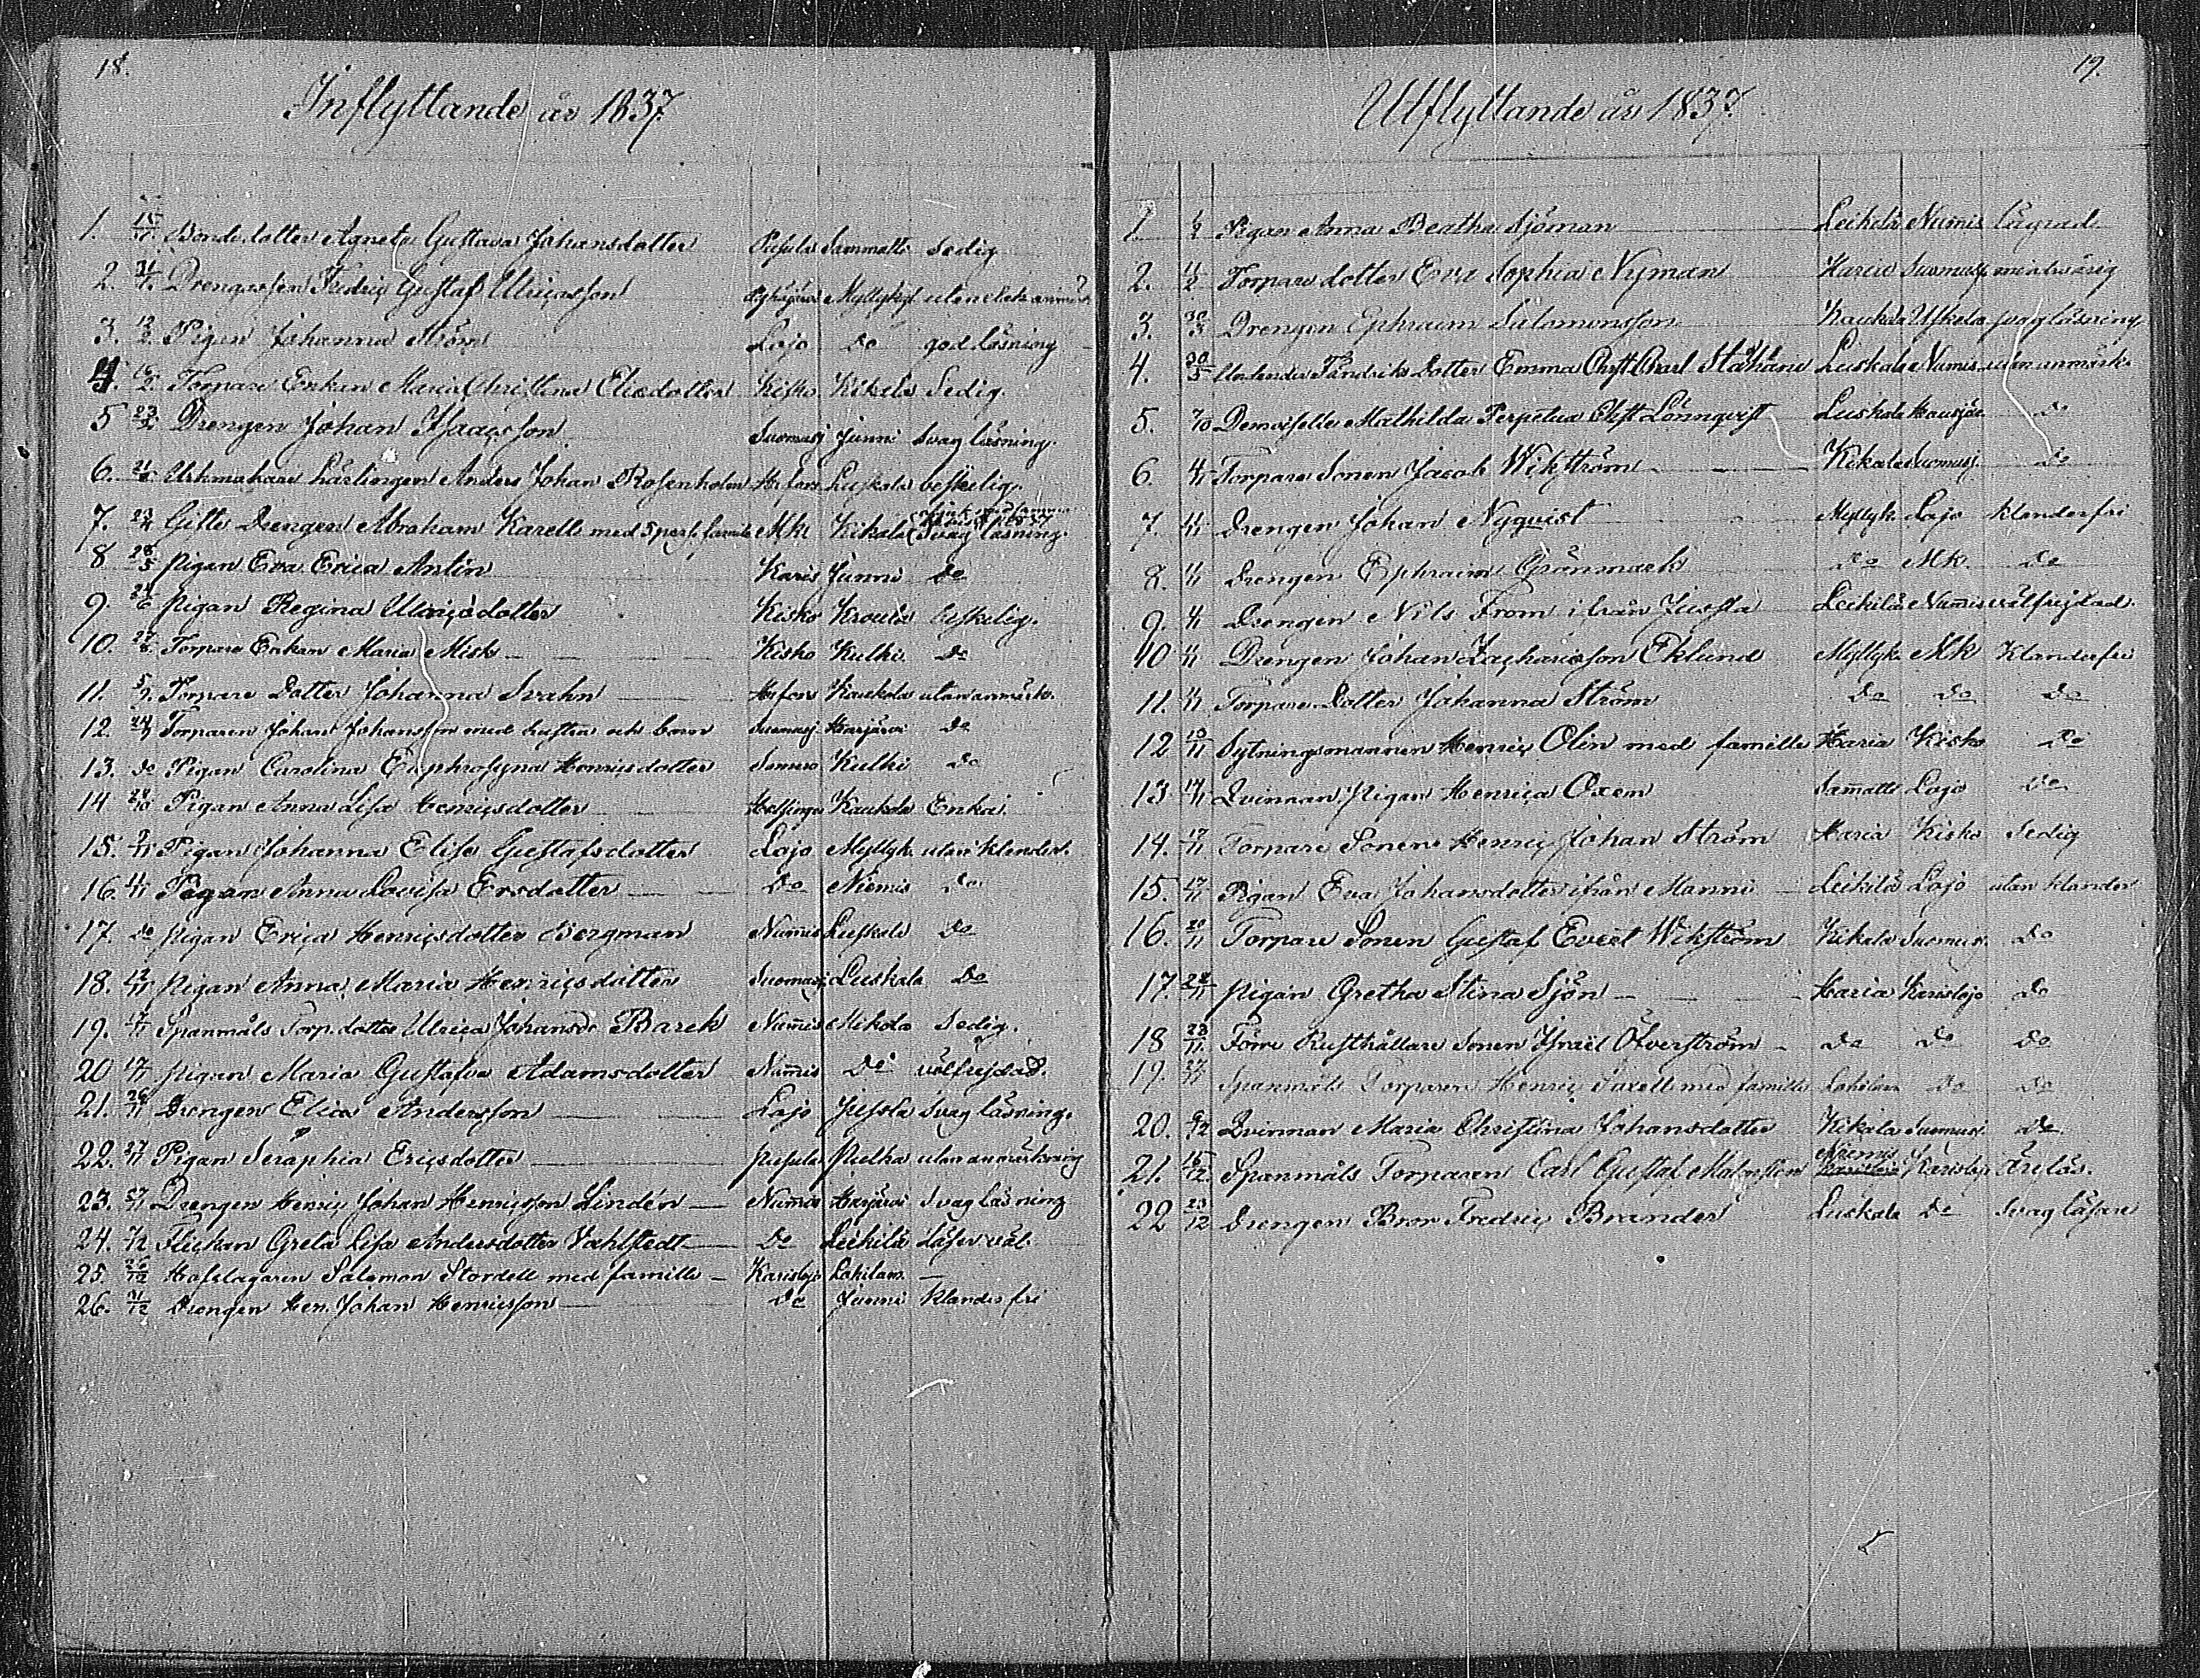 18.
Inflyttande år 1837.
1. 15/1 Bondedotter Agneta Gustava Johansdotter Pusula Sammatti Sedig
2. 31/1 Drengssonen Fredric Gustaf Ulricsson Myllykyl utan elak anmärk
3. 12/2 Pigan Johanna Ström Lojo Do god läsning
4. 16/2 Torpare Enkan Maria Christina Eliedotter Kisko Kikala Sedig
5 23/2 Drengen Johan Isaacsson Suomusj Junni Svag läsning.
6. Urhmakare Lärlingen Anders Johan Rosenholm H:fors Luskala beskelig.
7. 23/4 Gifte Drengen Abraham Karell med 5 pers. familie MK Kikala Svag läsning.
8 28/5 Pigan Eva Erica Antin Karis Junni Do
9. 24/6 Pigan Regina Ulricsdotter Kisko Kroula beskelig.
10. 27/8 Torpare Enkan Maria Misk Kisko Kulki Do
11. 5/9 Torpare Dotter Johanna Svahn H:fors Kaukola utan anmärk.
12. 24/9 Torparen Johan Johansson med hustru och barn Suomusj Harjärvi Do
13. Do Pigan Carolina Euphrosyna Henricsdotter Somero Kulki Do
14 29/10 Pigan Anna Lisa Henricsdotter Helsinge Kaukola Enka.
15. 9/11 Pigan Johanna Elisa Gustafsdotter Lojo Myllyk. utan klander.
16. 11/11 Pigan Anna Lovisa Ersdotter Do Niemis Do
17. Do Pigan Erica Henricsdotter Bergman Num̄is Luskala Do
18. 12/11 Pigan Anna Maria Henricsdotter Suomusj Luskala Do
19. 17/11 Spanmåls Torp. dotter Ulrica Johansdr Barck Num̄is Mikola Sedig.
20 17/11 Pigan Maria Gustafva Adamsdotter Num̄is Do välfrejdad.
21. 26/11 Drengen Elias Andersson Lojo Jussla Svag läsning.
22. 27/11 Pigan Seraphia Ericsdotter Pusula Pulka utan anmärkning
23. 27/11 Drengen Henric Johan Henricsson Lindén Num̄is Harjärvi Svag läsning
24. 7/12 Flickan Greta Lisa Andersdotter Vahlstedt Do Leikilä Läser väl.
25. 26/12 Hofslagaren Salomon Stordell med famille Karislojo Lahilam. —
26. 31/12 Drengen Hen. Johan Henricsson Do Junni Klander fri
19.
Utflyttande år 1837.
1 Pigan Anna Beatha Sjöman Leikilä Num̄is
2. 11/2 Torpare dotter Eva Sophia Nyman Haria Suomusj minderårig
3. 30/3 Drengen Ephraim Salomonsson Kaukola Uskela svag läsning
4. 30/5 Fändriks Dotter Emma Luskala Num̄is utan anmärk.
5. 7/10 Demoiselle Mathilda Perpetua Lönnqvist Luskala Hausjär. Do
6. 4/11 Torpare Sonen Jacob Wikström Kikala Suomusj. Do
7. 4/11 Drengen Johan Nyqvist Myllyk. Lojo klanderfri
8. Drengen Ephraim Grönmark Do MK. Do
9. Drengen Nils From ifrån Jussla Leikilä Num̄is välfrejdad.
10 Drengen Johan Zachariasson Eklund Myllyk. MK Klanderfri
11. Torpare Dotter Johanna Ström Do Do Do
12 10/11 Sytningsmannen Henric Olin med famille Haria Kisko Do
13 14/11 Qvinnan Pigan Henrica Oxen Sam̄atti Lojo Do
14. 17/11 Torpare Sonen Henric Johan Ström Haria Kisko Sedig
15. 17/11 Pigan Eva Johansdotter ifrån Manni Leikilä Lojo utan klander
16. 20/11 Torpare Sonen Gustaf Evert Wikström Kikala Suomusj. Do
17. Pigan Gretha Stina Sjön Haria Karislojo Do
18 23/11 Före Rusthållare Sonen Israel Öfverström Do Do Do
19. Spanmåls Torparen Henric Saxell med famille Lahilam Do Do
20. 9/12 Qvinnan Maria Christina Johansdotter Kikala Suomusj Do
21. 15/12 Spanmåls Torparen Carl Gustaf Malmsten Niemis Karislojo
22 23/12 Drengen Bror Fredric Brander Luskala Do Svag läsare